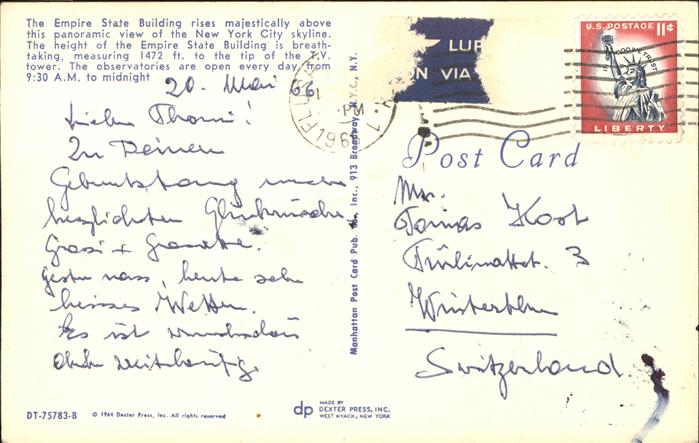 The Empire State Building rises majestically above
this panoramic view of the New York City skyline.
The height of the Empire State Building is breath-
taking, measuring 1472 ft. to the tip of the T.V.
tower. The observatories are open every day from
9:30 A.M. to midnight
20. Mai 66
Lieber Thomi!
Zu Deinem
Geburtstag meine
herzlichsten Glückwünsche
Gestern nass, heute sehr
heisses Wetter.
Es ist wunderbar
DT-75783-B
© 1964 Dexter Press, Inc. All rights reserved
Manhattan Post Card Pub. Co., Inc., 913 Broadway, N.Y.C., N.Y.
dp
MADE BY
DEXTER PRESS, INC.
WEST NYACK, NEW YORK
LUF
N VIA
PM
U.S. POSTAGE 11¢
IN GOD WE TRUST
LIBERTY
Post Card
Mr.
Tomas Kost
3
Winterthur
Switzerland